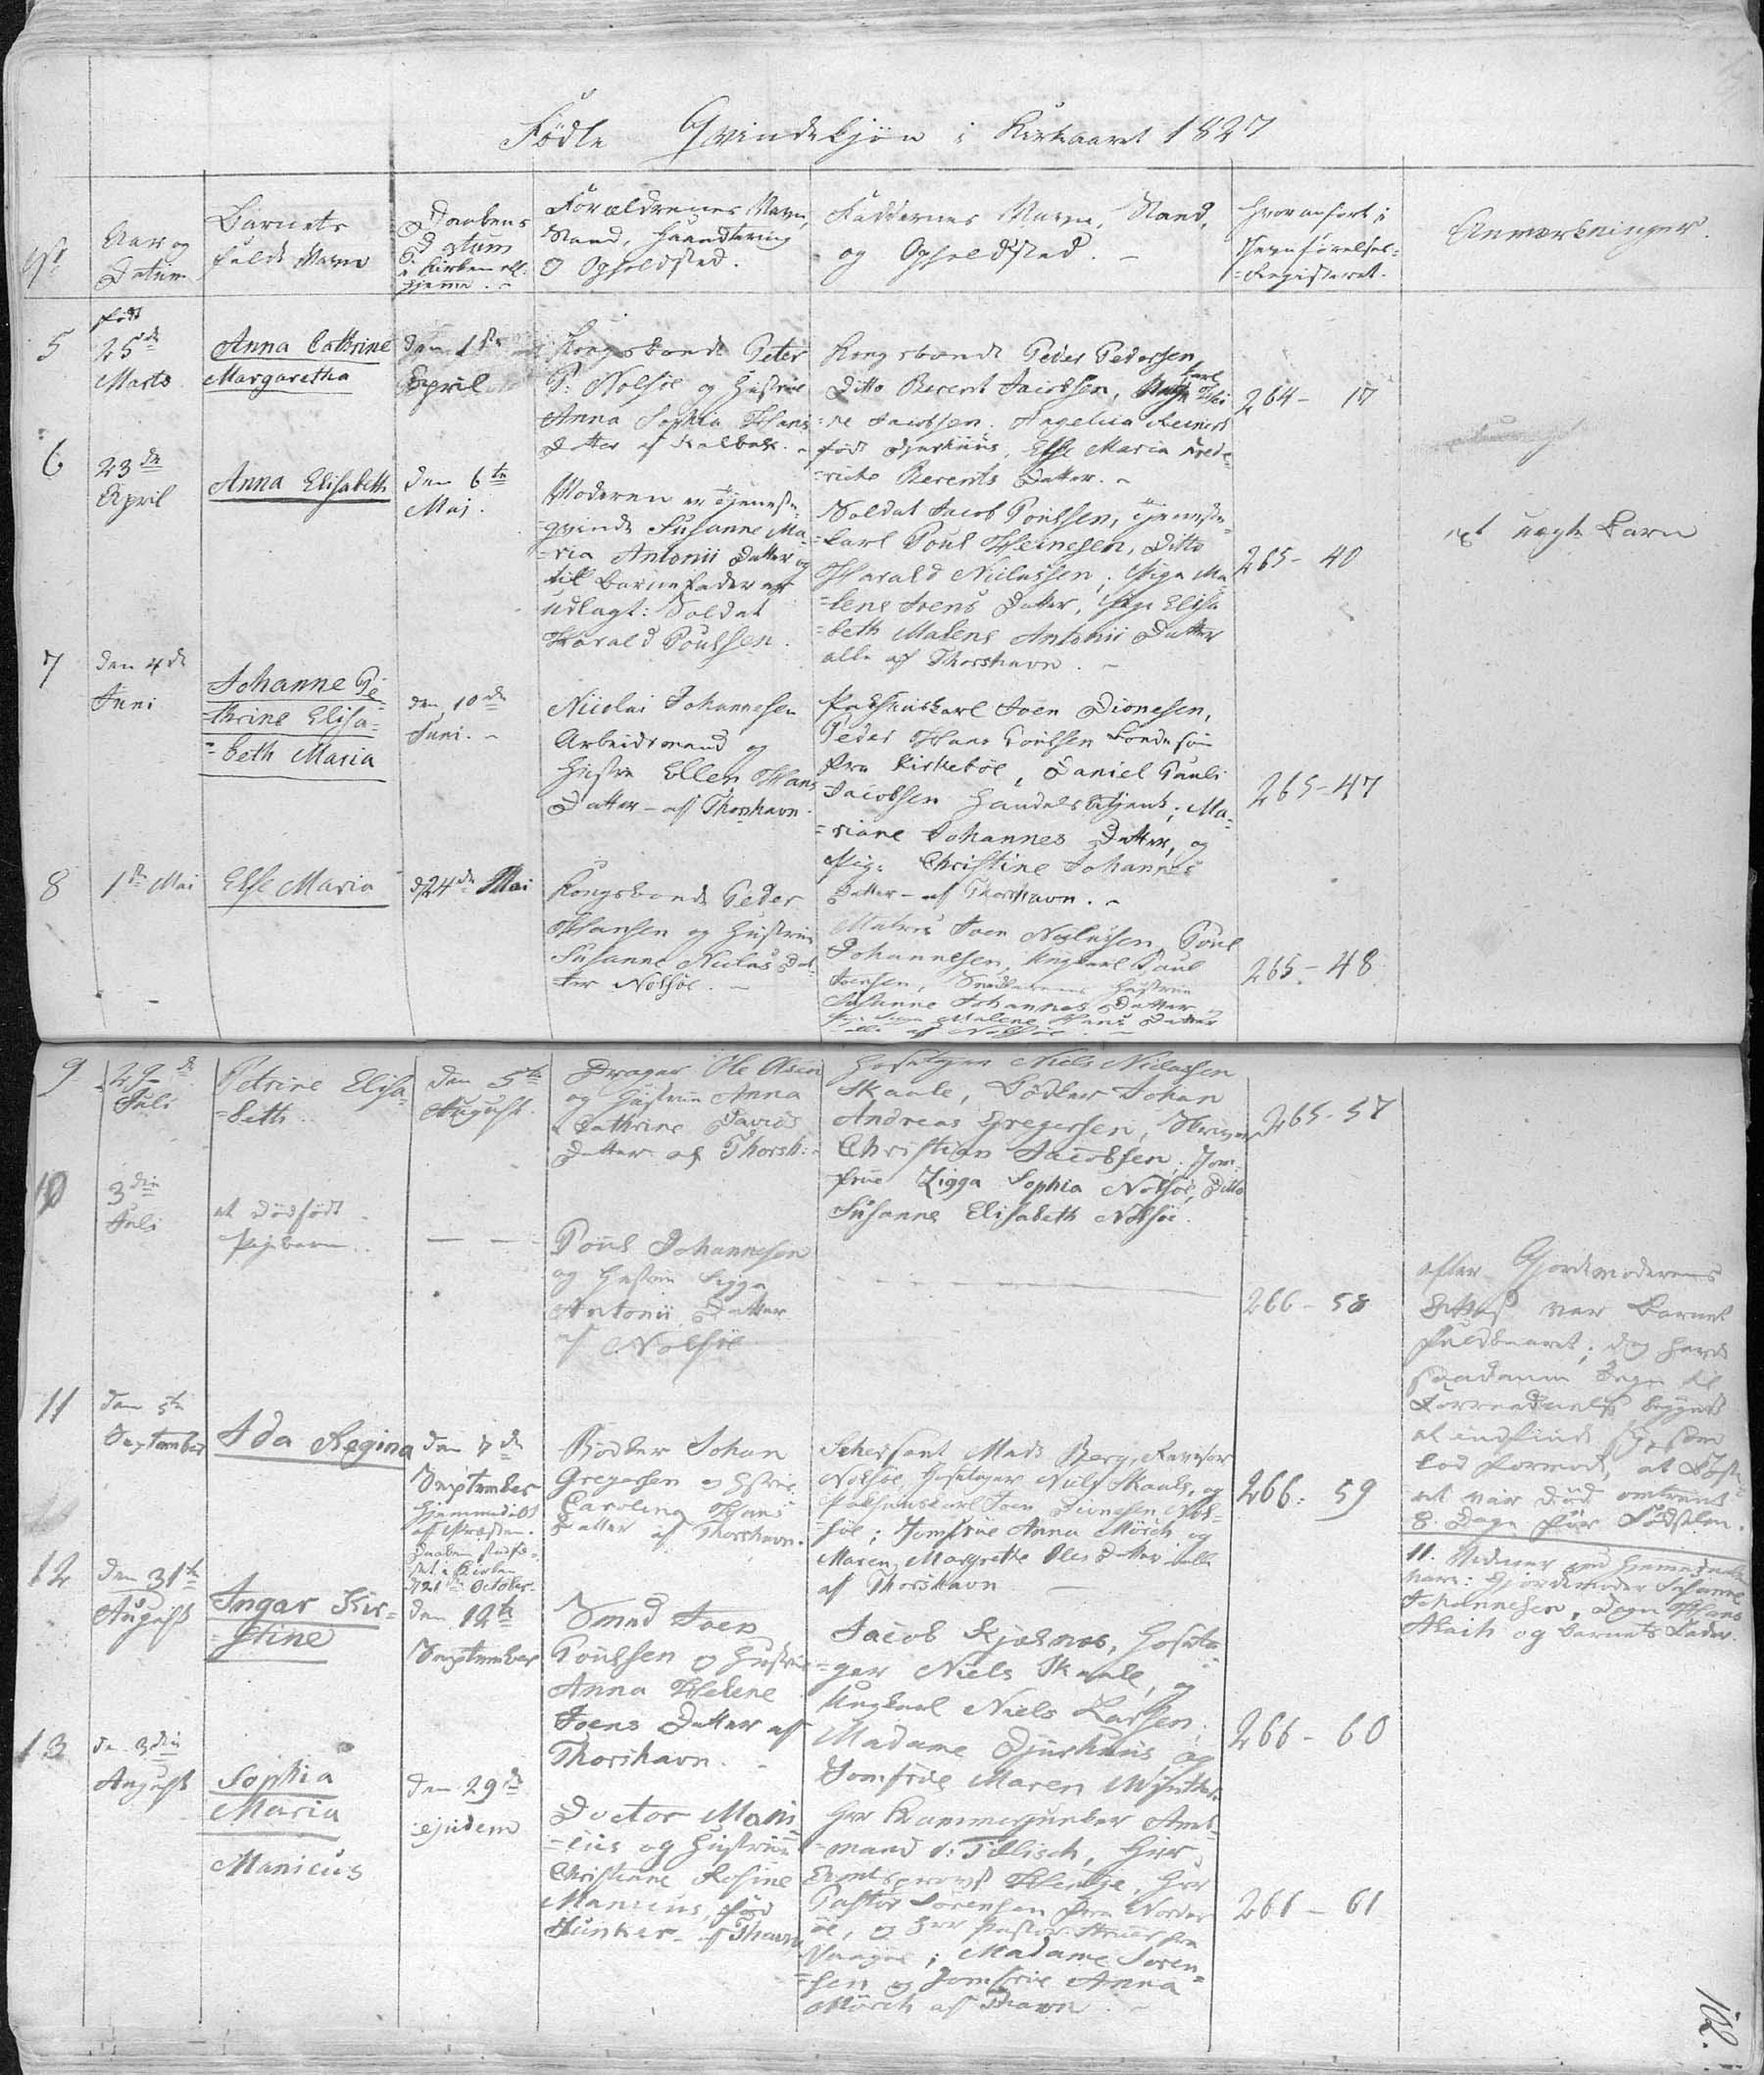 Födte Qvindekjön i Kirkeaaret 1827
No
Aar og
Datum
Barnets
fulde Navn
Daabens
Datum
i Kirken ell.
hjemme. -
Forældrenes Navn,
Stand, Haandtering
O Opholdsted.
Faddernes Navn, Stand,
og Opholdsted. -
Hvor anfört i
Jevnförelses-
=Registeret.
Anmærkninger.
5
född
25de
Marts
Anna Cathrine
Margaretha
den 1ste
April
Kongsbonde Peter
P: Nolsöe og Hustrue
Anna Sophia Hans
Datter af Kalbak. -
Kongsbonde Peder Pedersen
Ditto Berent Jacobsen,
=ne Jacobsen. Angelica Reinert
född Djurhuus, Else Maria Frede-
=rike Berents Datter. -
264 - 17
6
23de
April
Anna Elisabeth
den 6te
Mai.
Moderen er Tjeneste-
qvinde Susanne Ma-
=ria Antonii Datter og
til Barnefader er
udlagt: Soldat
Harald Poulsen.
Soldat Jacob Poulsen, Tjeneste-
=karl Poul Heinesen, Ditto
Harald Niclassen; Pige Ma-
=lene Joens Datter, Pige Elisa
=beth Malene Antonii Datter
alle af Thorshavn. -
265 - 40
et uægte Barn
7
den 4de
Juni
Johanne Pe-
=thrine Elisa-
=beth Maria
den 10de
Juni. -
Nicolai Johannesen
Arbeidsmand og
Hustru Ellen Hans
Datter - af Thorshavn.
Pakhuuskarl Joen Dionesen,
Peder Hans Poulsen Bondesön
fra Kirkeböe, Daniel Pauli
Jacobsen Handelsbetjent; Ma-
=riane Johannes Datter, og
Pige Christine Johannes
Datter - af Thorshavn. -
265 - 47
8
1ste Mai
Else Maria
d 24de Mai
Kongsbonde Peder
Hansen og Hustrue
Susanne Niclas Dat-
ter Nolsöe. -
Joen Niclassen, Poul
Johannesen, Ungkarl Poul
Joensen, Hustrue
Susanne Johannes Datter
Malene Hans Datter
alle af Nolsöe. -
265 - 48
9
29de
Juli
Petrine Elisa-
=beth.
den 5te
August.
Drager Ole Olsen
og Hustrue Anna
Cathrine Davids
Datter af Thorsh: -
Hosetager Niels Niclassen
Skaale, Bödker Johan
Andreas Gregersen,
Christian Jacobsen; Jom-
frue Zigga Sophia Nolsöe, Ditto
Susanne Elisabeth Nolsöe.
265 - 57
10
3die
Juli
et dödfödt
Pigebarn.
— —
Poul Johannesen
og Hustrue Sigga
Antonii Datter
af Nolsöe
266 - 58
efter Gjordemoderens
var Barnet
fuldbaaret; dog havde
saadanne Tegn til
begyndt
at indfinde sig, som
lod formode, at Foste-
ret var död omtrent
8 Dage för Födselen.
11
den 5te
September
Ida Regina
den 7de
September
hjemmedöbt
af Præsten.
Daaben stadfæ-
stet i Kirken
d 21de October.
Bödker Johan
Gregersen og Hstrue
Carolina Hans
Datter af Thorshavn.
Mads Berg,
Nolsöe, Hosetager Niels Skaale, og
Pakhuuskarl Joen Dionesen Nol-
=söe; Jomfrue Anna Mörch og
Maren Margrethe Oles Datter alle
af Thorshavn —
266: 59
11. Vidner ved Hjemmedaaben
vare: Gjordemoder Susanne
Johannesen, Degn Hans
og Barnets Fader.
12
den 31te
August
Ingar Kir-
=stine
den 12te
September
Smed Joen
Poulsen og Hustrue
Anna Helene
Joens Datter af
Thorshavn. -
Jacob Kjelnes, Hoseta-
=ger Niels Skaale, og
Ungkarl Niels Larsen;
Madame Djurhuus og
Jomfrue Maren Winther.
266 - 60
13
de 3die
August
Sophia
Maria
Manicus
den 29de
ejusdem
Doctor Mani-
=cus og Hustrue
Christiane Rosine
Manicus, född
Hünker - af Thavn
Hrr Kammerjunker Amt-
=mand v: Tillisch, Hrr
Hentze, Hrr
Pastor Sörensen fra Norder
öe, og Hrr Pastor fra
Vaagöe; Madame Sören-
=sen og Jomfrue Anna
Mörch af Thavn. -
266 - 61
102.